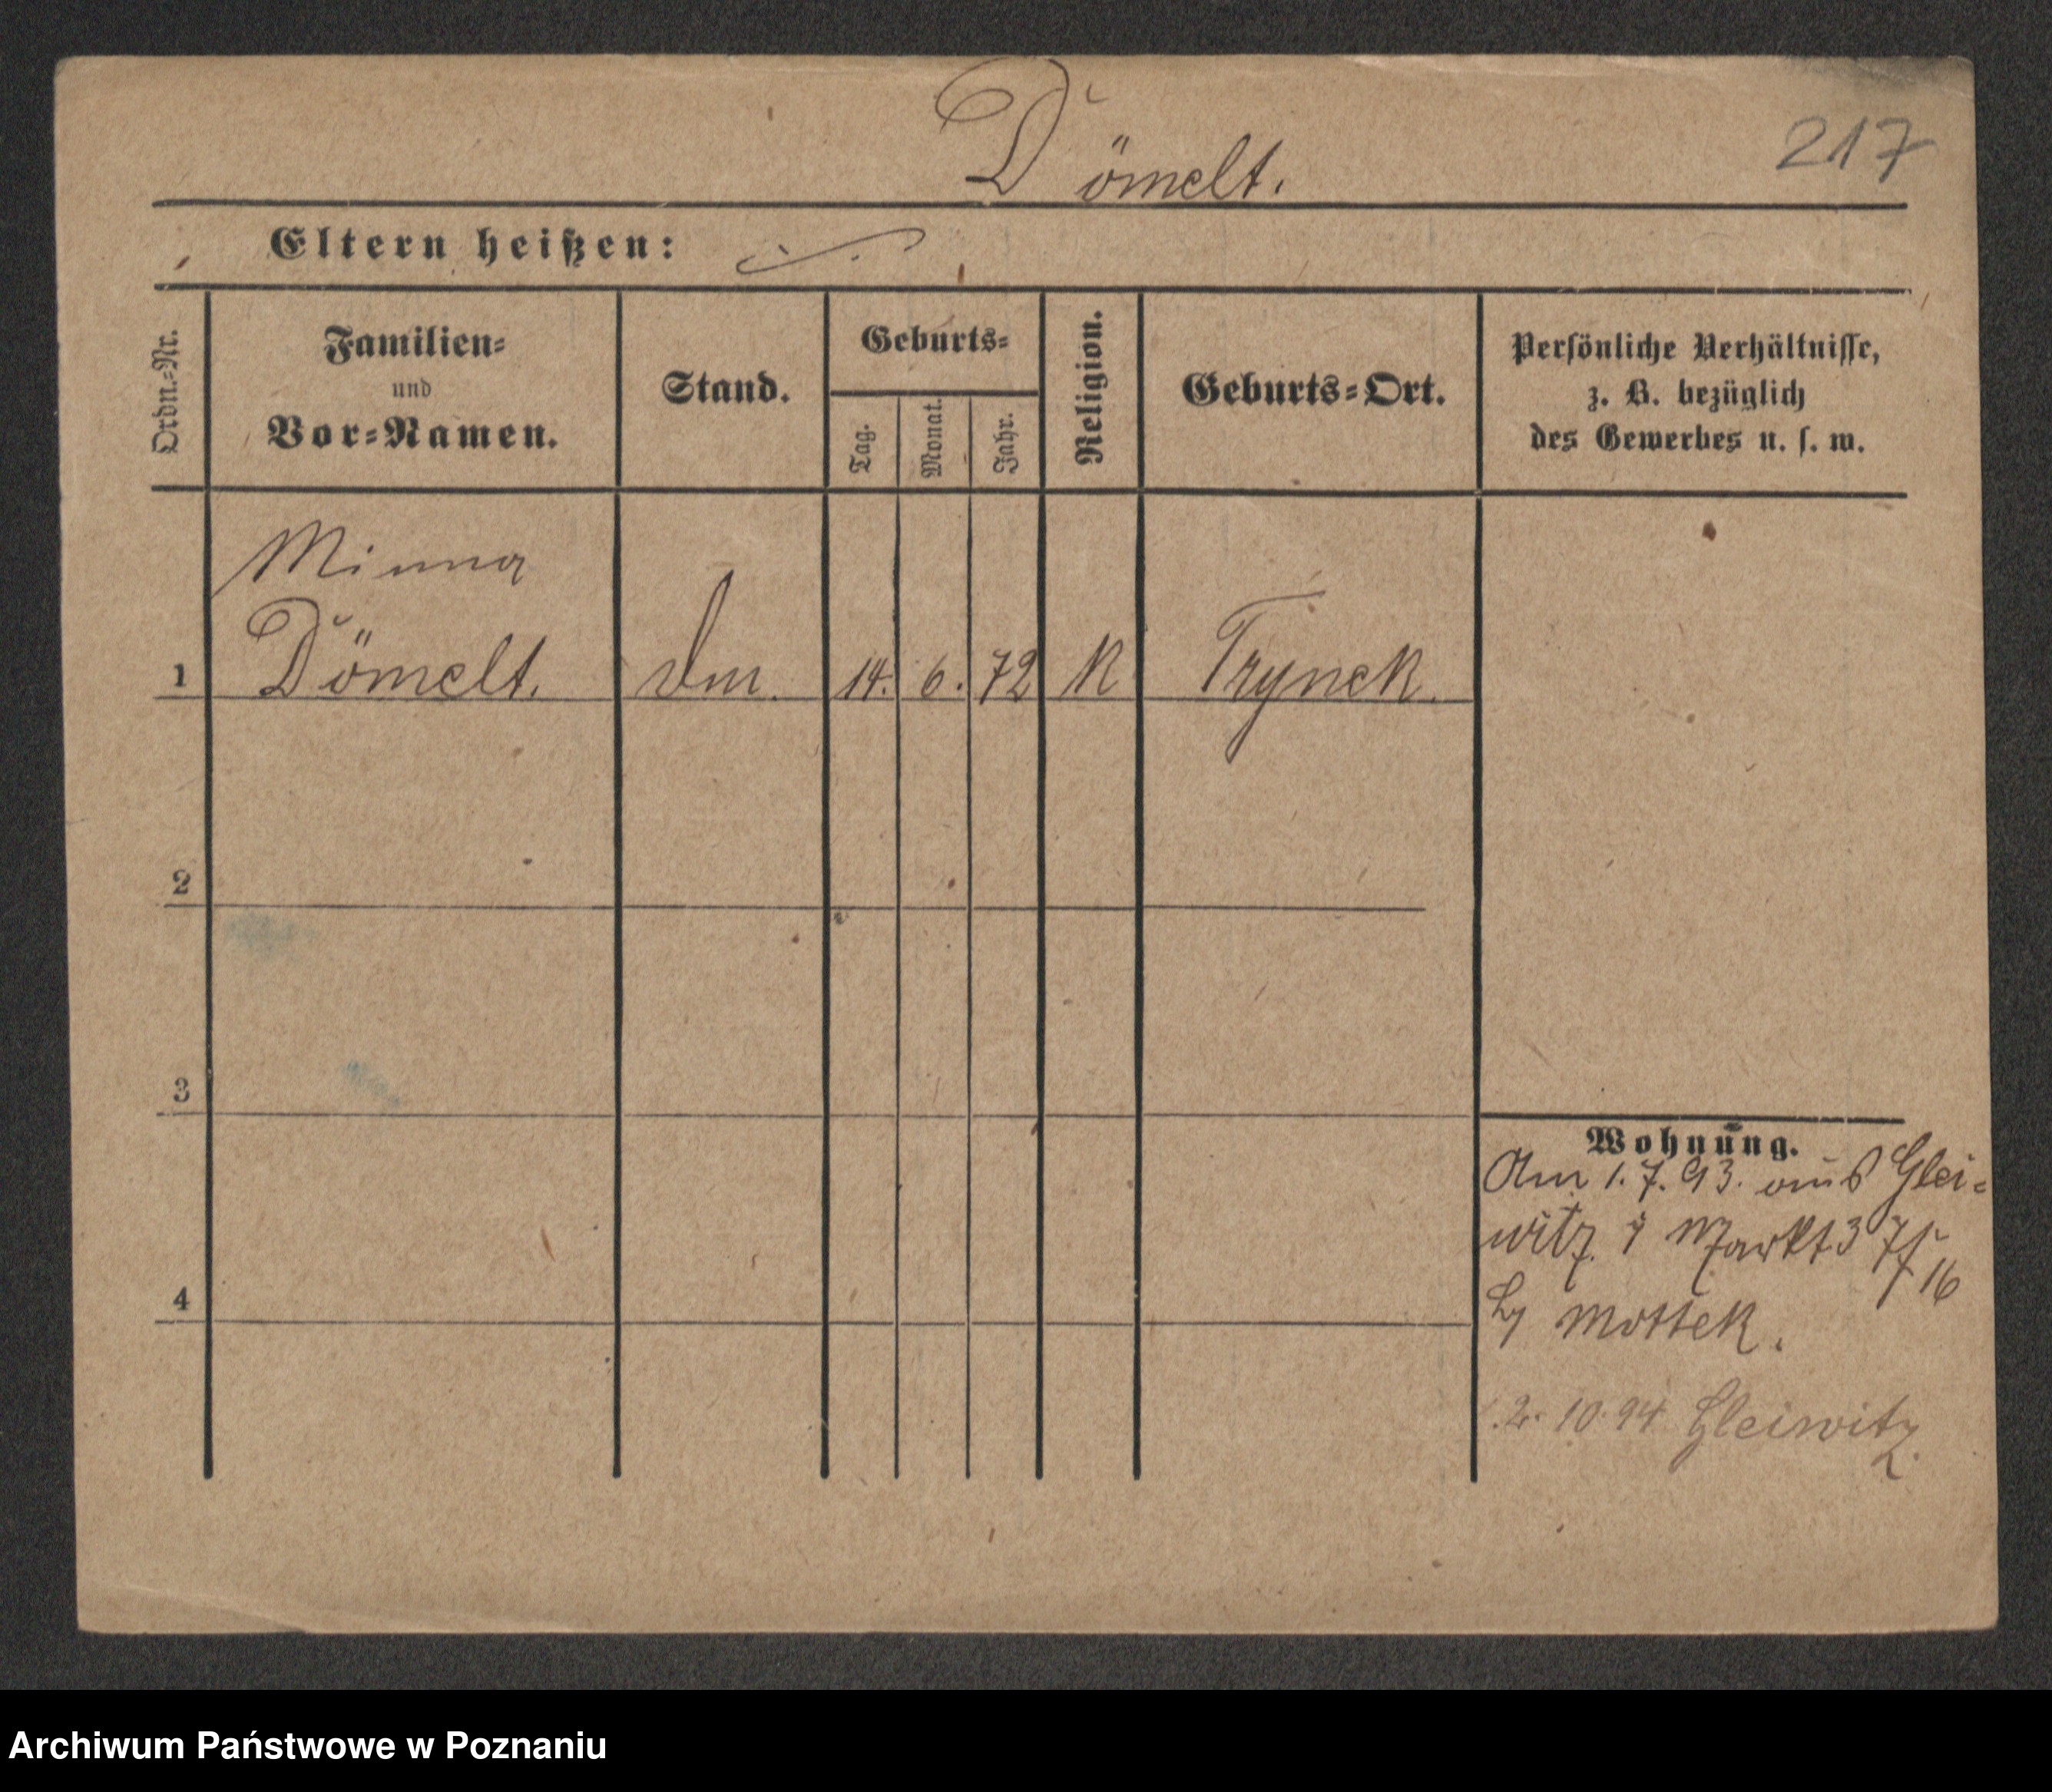 Dömelt.
217
Eltern heißen:
Ordn.-Nr.
Familien-
und
Vor-Namen.
Stand.
Geburts-
Tag.
Monat.
Jahr.
Religion.
Geburts-Ort.
Persönliche Verhältnisse,
z. B. bezüglich
des Gewerbes u. s. w.
Minna
1 Dömelt. 14. 6. 72 K Trynek.
2
3
4
Wohnung.
Am 1.7.93. aus Glei-
witz Markt 3
Mottek.
2. 10. 94 Gleiwitz
Archiwum Państwowe w Poznaniu